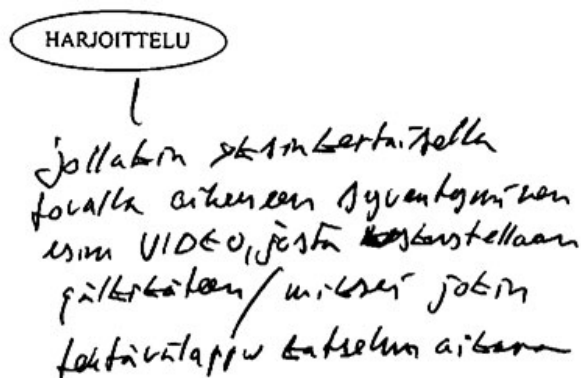 HARJOITTELU
jollakin yksinkertaisella
tavalla aiheeseen syventyminen
esim VIDEO, josta keskustellaan
jälkikäteen / miksei jokin
tehtävälappu katselun aikana